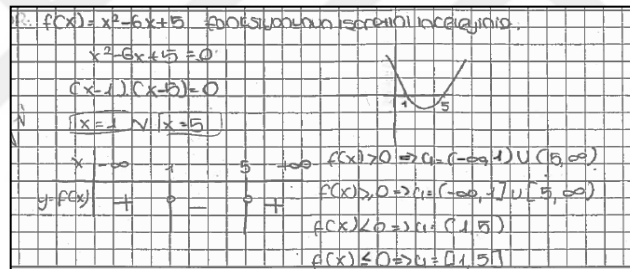 f(x) = x²-6x+5 fonksiyonunun işaretini inceleyiniz.
x²-6x+5=0
(x-1).(x-5)=0
x=1 ∨ x=5
1 5
x -∞ 1 5 +∞
y=f(x) + 0 - 0 +
f(x)>0 => Ç1=(-∞,1) ∪ (5,∞)
f(x)≥0 => Ç1=(-∞,1] ∪ [5,∞)
f(x)<0 => Ç1=(1,5)
f(x)≤0 => Ç1=[1,5]